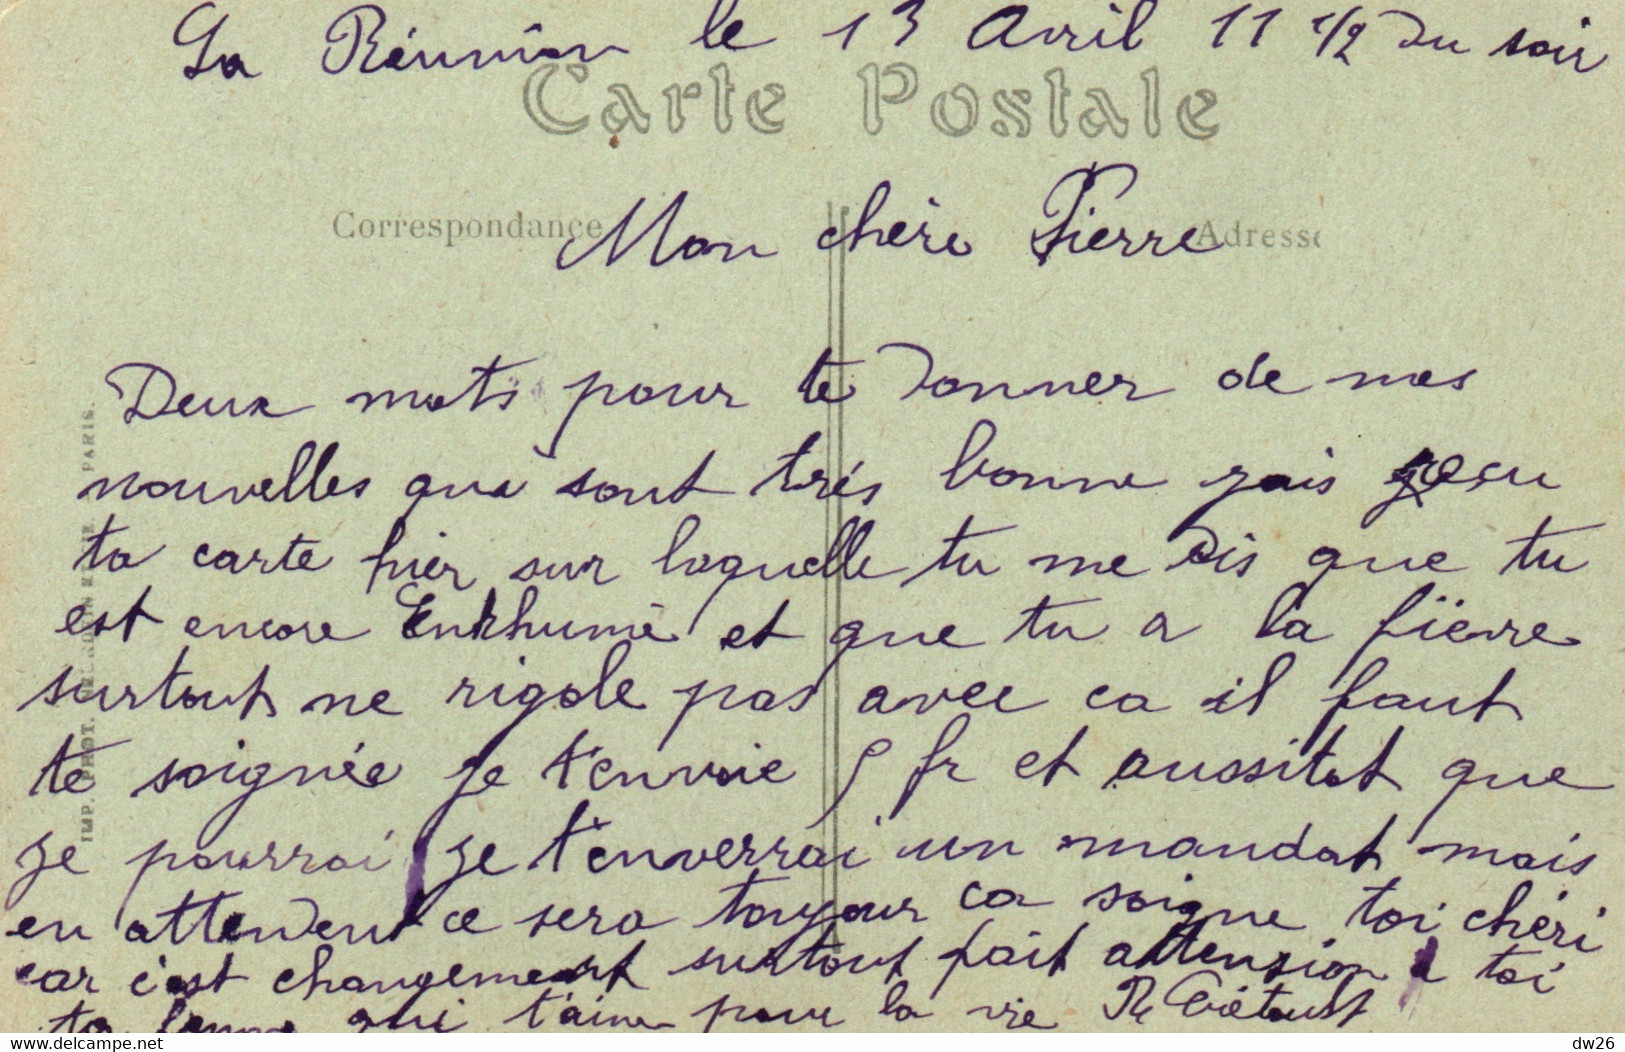 La Réunion le 13 Avril 11 1/2 du soir
Carte Postale
Correspondance
Adresse
Mon chère Pierre
Deux mots pour te donner de mes
nouvelles qui sont trés bonne jais reçu
ta carte hier sur laquelle tu me dis que tu
est encore Enrhumé et que tu a la fièvre
surtout ne rigole pas avec ca il faut
te soignée je t'envoie 5 fr et aussitot que
je pourrai je t'enverrai un mandat mais
en attendent ce sera toujour ca soigne toi chéri
car c'est changement surtout fait attension a toi
ta femme qui t'aime pour la vie R
IMP. PHOT. PARIS.
Imprimer la page en cours
dw26